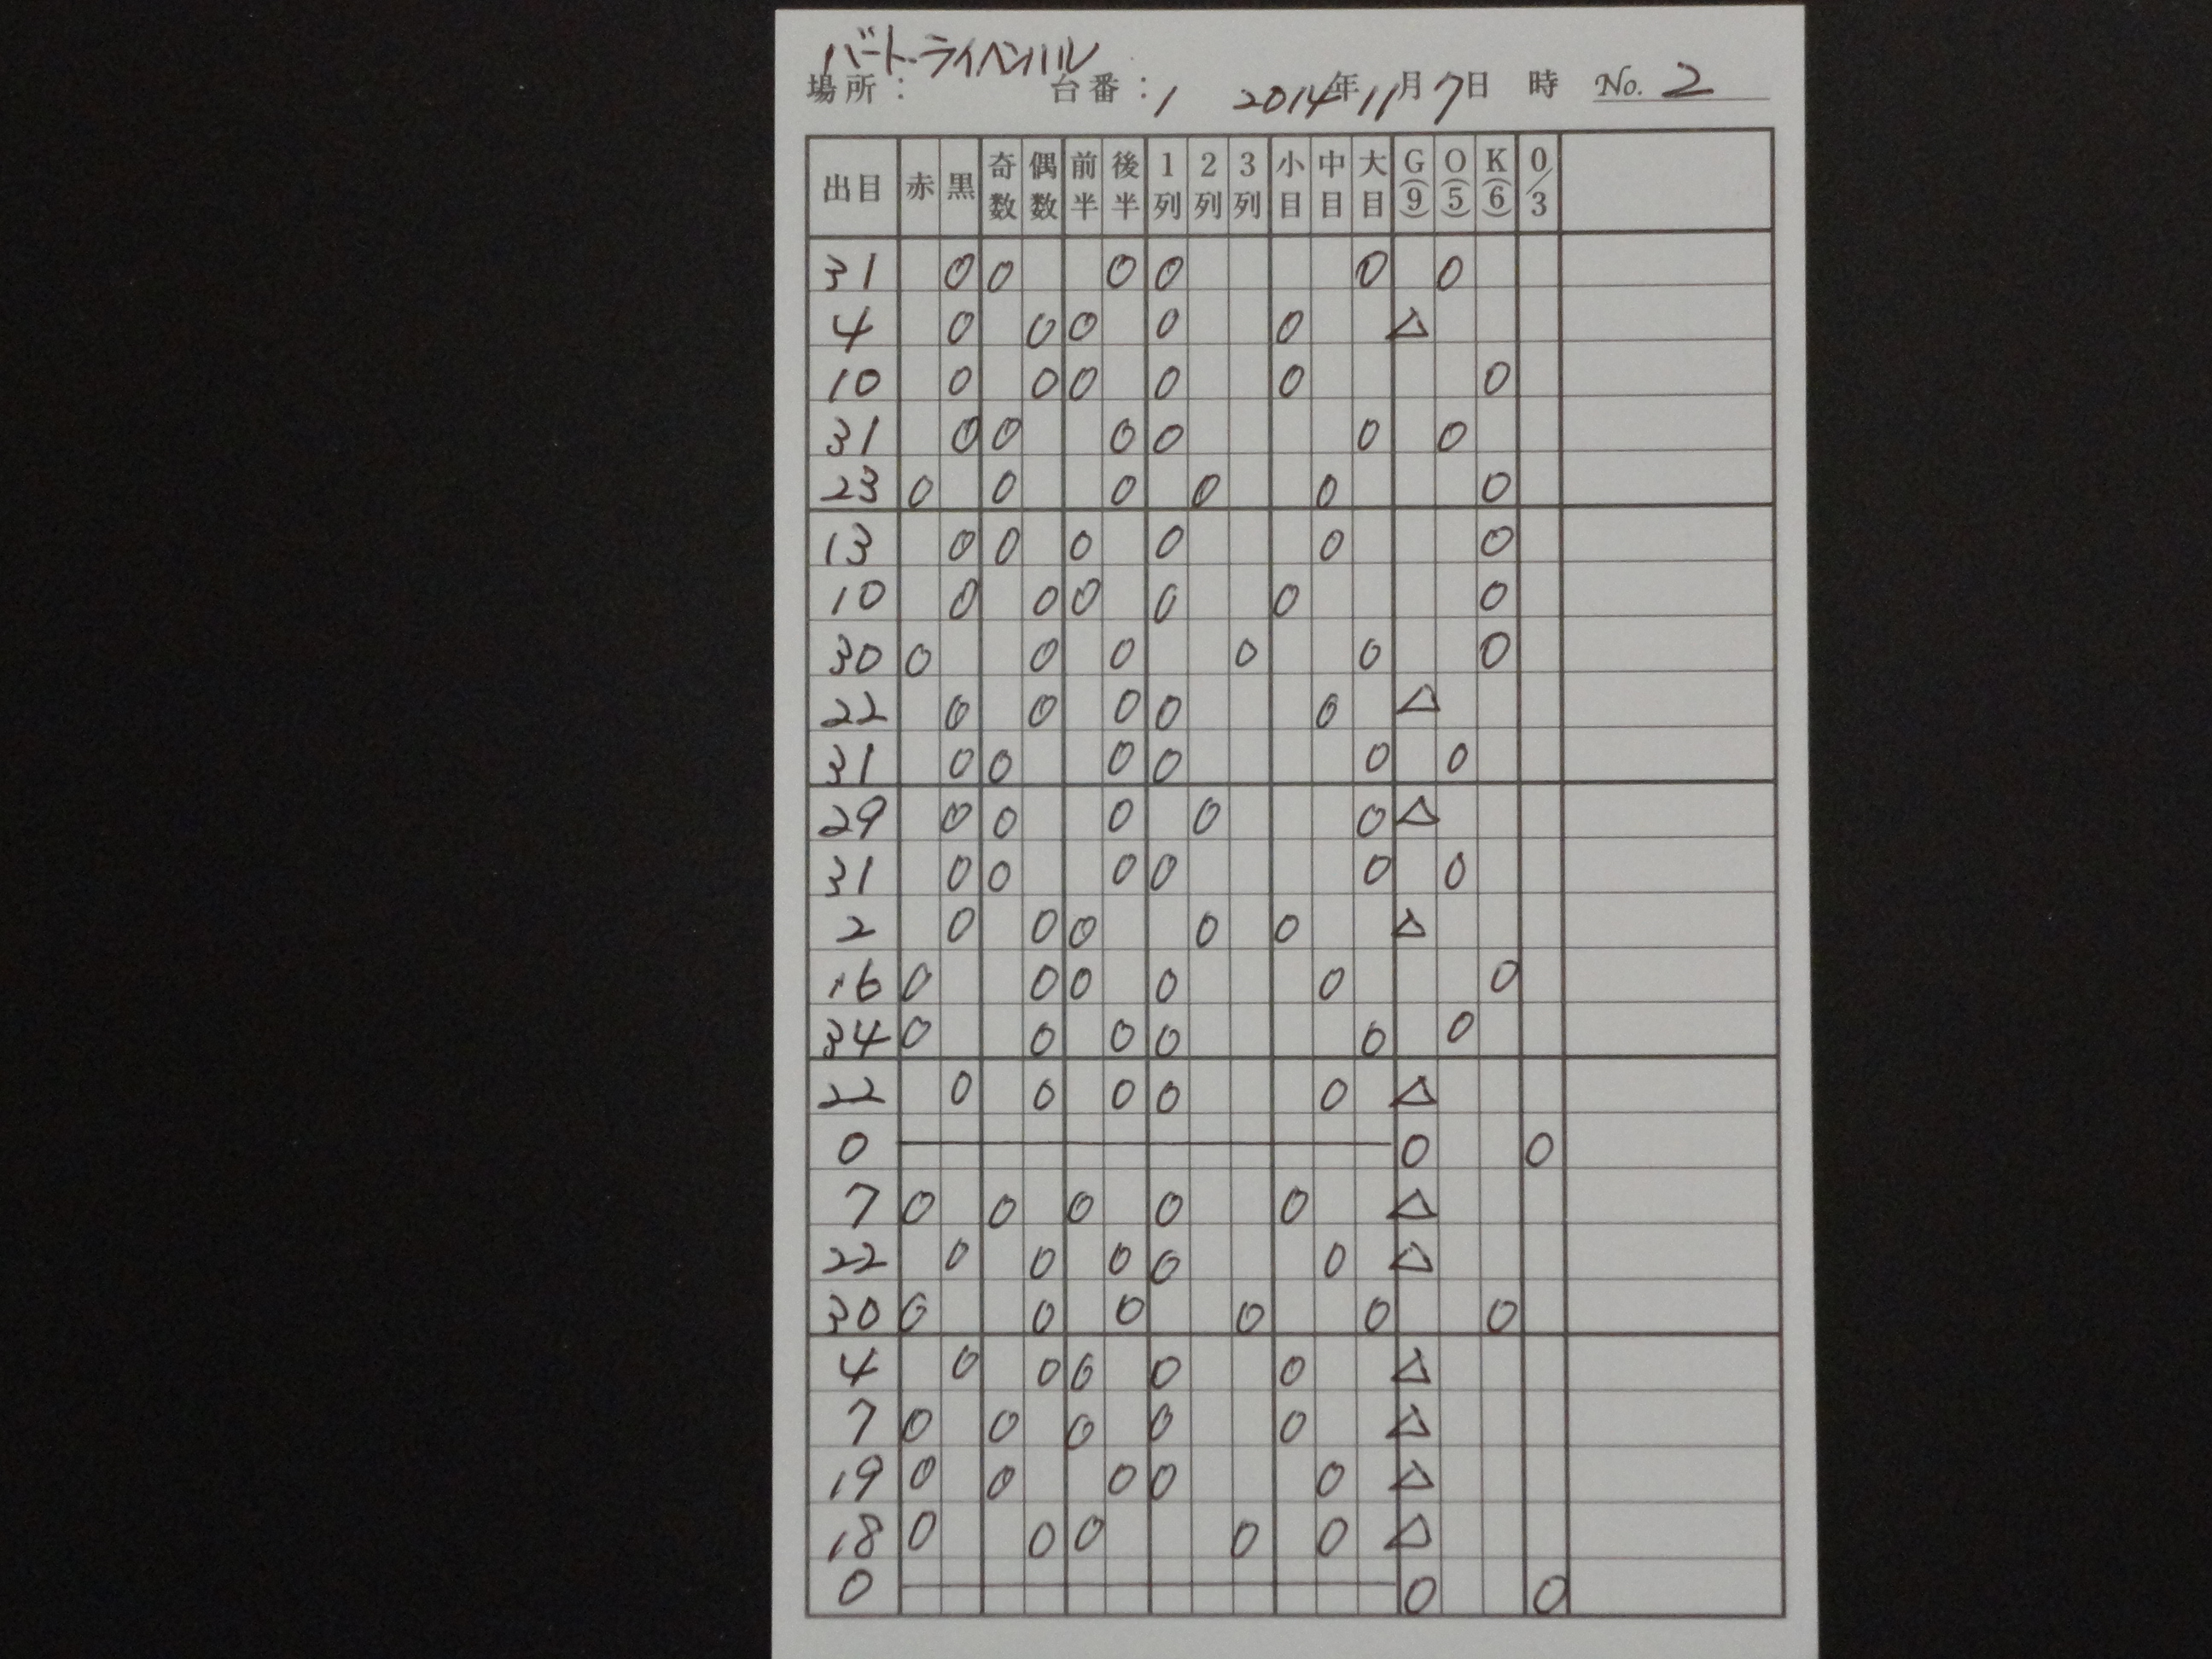 バート・ライヘンハル
場所： 台番：1 2014年11月7日 時 No. 2
出目 赤 黒 奇数 偶数 前半 後半 1列 2列 3列 小目 中目 大目 G(9) O(5) K(6) 0/3
31 0 0 0 0 0 0
4 0 0 0 0 0 △
10 0 0 0 0 0 0
31 0 0 0 0 0 0
23 0 0 0 0 0 0
13 0 0 0 0 0 0
10 0 0 0 0 0 0
30 0 0 0 0 0 0
22 0 0 0 0 0 △
31 0 0 0 0 0 0
29 0 0 0 0 0 △
31 0 0 0 0 0 0
2 0 0 0 0 0 △
16 0 0 0 0 0 0
34 0 0 0 0 0 0
22 0 0 0 0 0 △
0 0 0
7 0 0 0 0 0 △
22 0 0 0 0 0 △
30 0 0 0 0 0 0
4 0 0 0 0 0 △
7 0 0 0 0 0 △
19 0 0 0 0 0 △
18 0 0 0 0 0 △
0 0 0